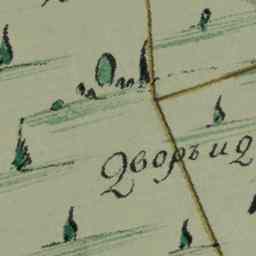 Дворъ и д